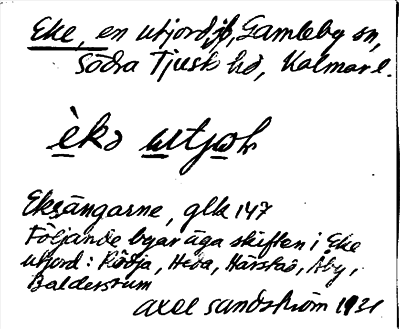 Eke, en utjord, Gamleby sn,
Södra Tjust hd, Kalmar l.
èkə utjoh
Eksängarne, glk 147
Följande byar äga skiften i Eke
utjord: Rödja, Heda, Härstad, Åby,
Balderstum
Axel Sandström 1931